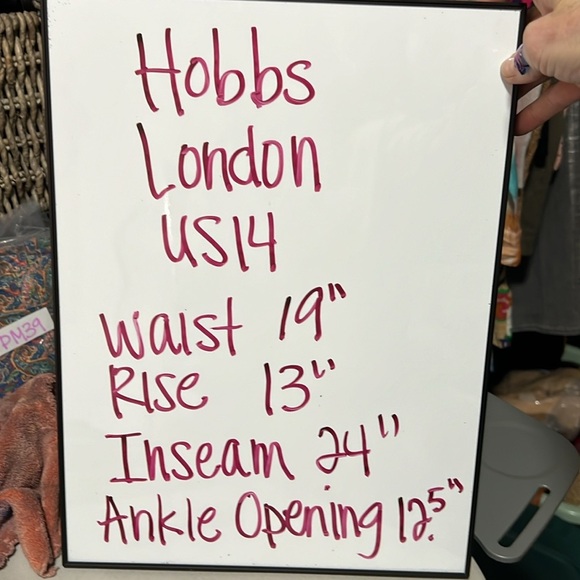 Hobbs
London
US14
Waist 19"
Rise 13"
Inseam 24"
Ankle Opening 12.5"
PM39